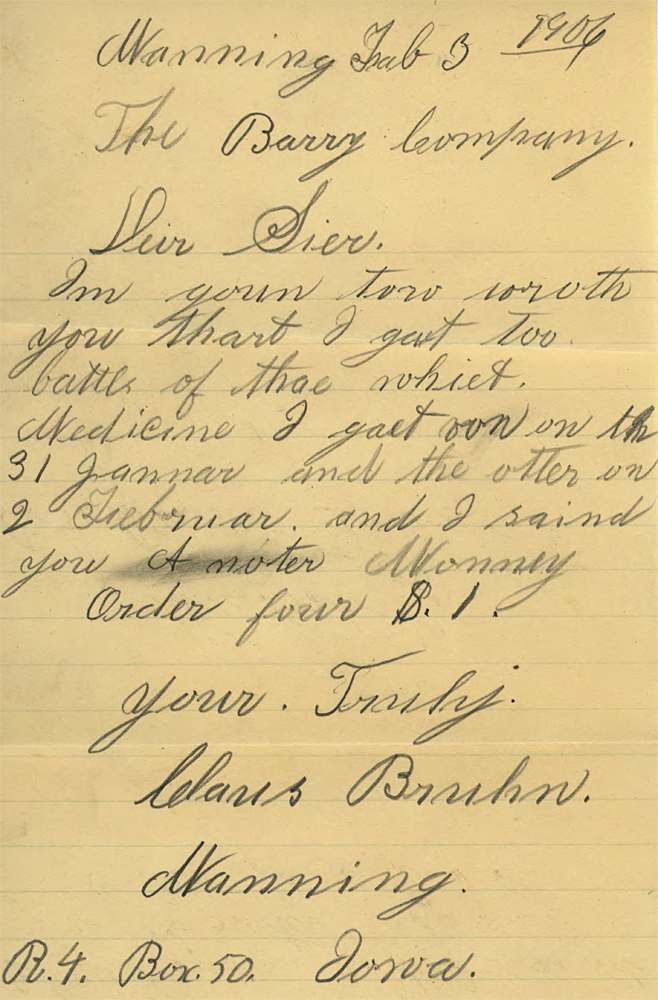 Manning Feb 3 1906
The Barry Company.
Deir Sier.
Im goun tow wroth
you thart I gat too
battls of thae whiet.
Medicine I gaet von on th
31 Jannar and the otter on
2 Febrruar. and I saind
you A noter Monney
Order four $. 1.
your. Truly.
Claus Bruhn.
Manning.
R.4. Box. 50. Iowa.